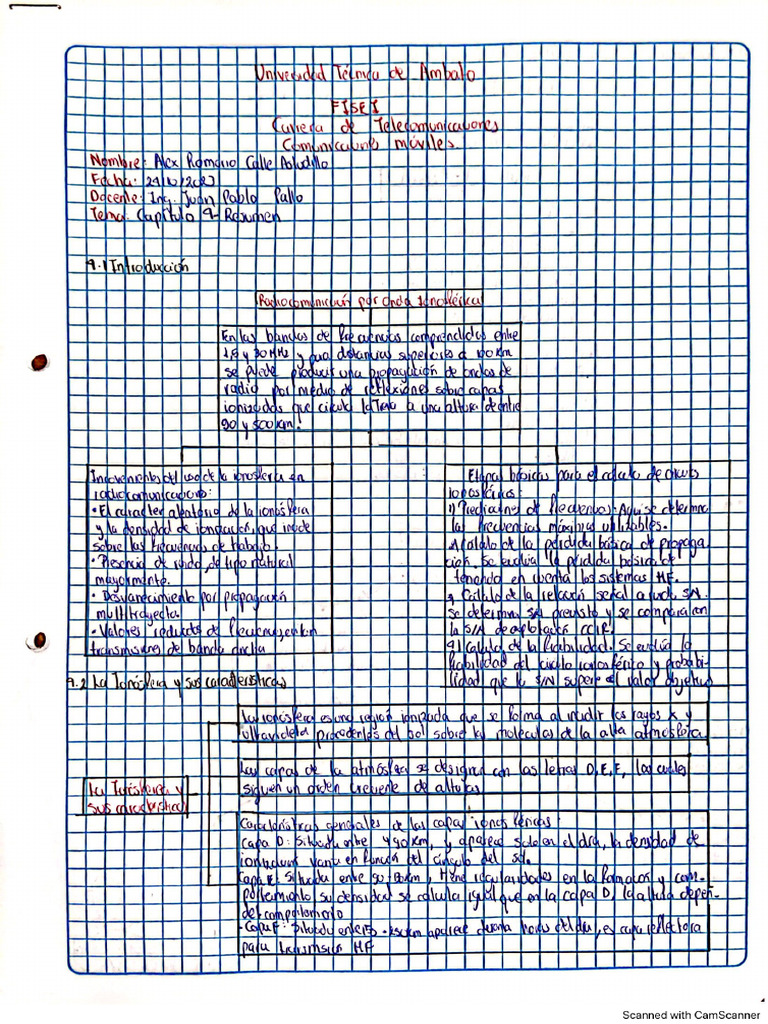 Universidad Técnica de Ambato
FISEI
Carrera de Telecomunicaciones
Comunicaciones móviles
Nombre: Alex Romario Calle Astudillo
Fecha: 24/10/2023
Docente: Ing. Juan Pablo Pallo
Tema: Capítulo 9- Resumen
9.1 Introducción
Radiocomunicación por onda Ionosférica
En las bandas de frecuencias comprendidas entre
1,5 y 30 MHz y para distancias superiores a 100 Km
se puede producir una propagación de ondas de
radio por medio de reflexiones sobre capas
ionizadas que circula la Tierra a una altura de entre
90 y 500 km.
Inconvenientes del uso de la ionosfera en
radiocomunicaciones:
• El caracter aleatorio de la ionósfera
y la densidad de ionización, que incide
sobre las frecuencias de trabajo.
• Presencia de ruido, de tipo natural
mayormente.
• Desvanecimiento por propagación
multitrayecto.
• Valores reducidos de frecuencia en
transmisiones de banda ancha
Etapas básicas para el calculo de circuitos
ionosféricos:
1) Predicciones de frecuencias: Aqui se determina
las frecuencias máximas utilizables.
Calculo de la pérdida básica de propaga
ción, se evalúa la pérdida básica de
teniendo en cuenta los sistemas HF.
Calculo de la relación señal a ruido S/N
se determina S/N previsto y se compara con
la S/N de explotación CCIR.
4) Calculo de la fiabilidad. Se evalúa la
fiabilidad del circuito ionosférico y probabi-
lidad que la S/N supere el valor objetivo
9.2 La Ionósfera y sus características
La ionósfera es una región ionizada que se forma al incidir los rayos x y
ultravioleta procedentes del sol sobre las moléculas de la alta atmosfera
Las capas de la atmósfera se designan con las letras D, E, F, las cuales
siguen un orden creciente de alturas
La Ionósfera y
sus características
Características generales de las capas ionosféricas:
Capa D: Situada entre y 90 Km, y aparece solo en el dia, la densidad de
ionización varía en función del círculo del sol.
Capa E: Situada entre 90 - Km, tiene regularidades en la formación y com-
portamiento su densidad se calcula igual que en la capa D, la altura depen-
del comportamiento
- Capa F: Situada entre Km aparece durante horas del día, es capa reflectora
para transmisión HF
Scanned with CamScanner